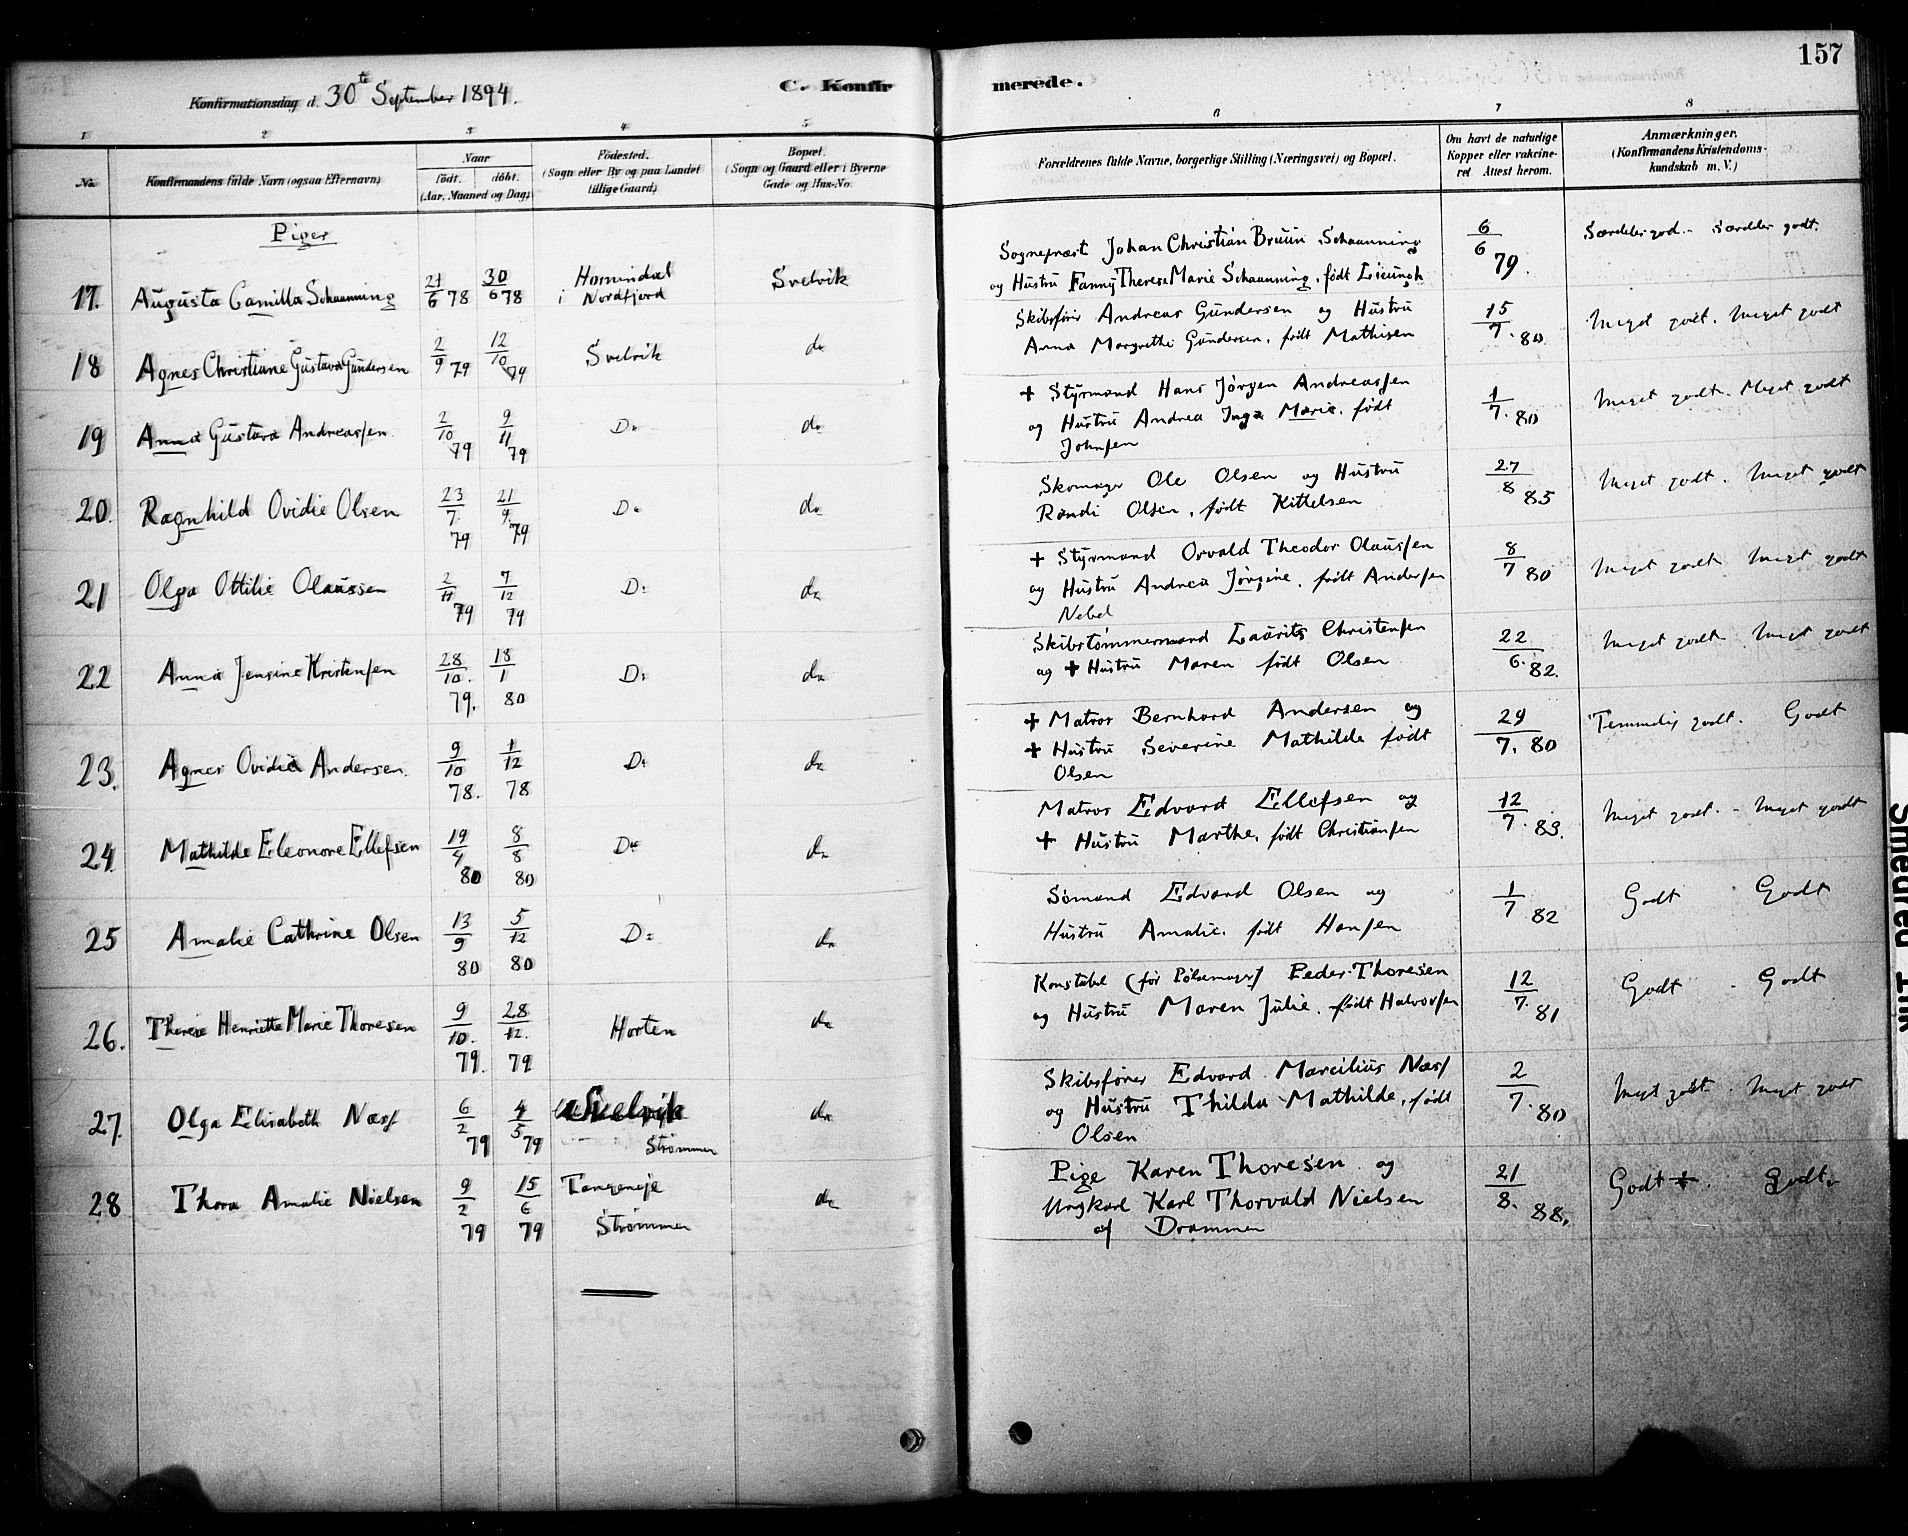 157
Konfirmationsdag d. 30te September 1894.
C. Konfirmerede.
1 2 3 4 5 6 7 8
No.
Konfirmandens fulde Navn (ogsaa Efternavn)
Naar
født. døbt.
(Aar, Maaned og Dag)
Fødested.
(Sogn eller By og paa Landet
tillige Gaard)
Bopæl.
(Sogn og Gaard eller i Byerne
Gade og Hus-No.
Forældrenes fulde Navne, borgerlige Stilling (Næringsvei) og Bopæl.
Om havt de naturlige
Kopper eller vakcine-
ret Attest herom.
Anmærkninger.
(Konfirmandens Kristendoms-
kundskab m. V.)
Piger
17. Augusta Camilla Schaanning 21/6 78 30/6 78 Hornindal
i Nordfjord Svelvik
Sognepræst Johan Christian Bruun Schaanning
og Hustru Fanny Therese Marie Schaanning, født 6/6 79. Særdeles god. - Særdeles godt.
18 Agnes Christiane Gustava Gundersen 2/9 79 12/10 79 Svelvik do
Skibsfører Andreas Gundersen og Hustru
Anna Margrethe Gundersen, født Mathisen 15/7. 80 Meget godt. Meget godt
19 Anna Gustava Andreassen 2/10 79 9/11 79 Do do
+ Styrmand Hans Jørgen Andreassen
og Hustru Andrea Inga Marie, født
Johnsen 1/7. 80 Meget godt. Meget godt
20. Ragnhild Ovidie Olsen 23/7. 79 21/9. 79 Do do
Skomager Ole Olsen og Hustru
Randi Olsen, født Kittelsen 27/8 85 Meget godt. Meget godt
21 Olga Ottilie Olaussen 2/11 79 7/12 79 Do do
+ Styrmand Osvald Theodor Olaussen
og Hustru Andrea Jørgine, født Andersen
Nebel 8/7 80 Meget godt Meget godt
22 Anna Jensine Kristensen 28/10. 79. 18/1 80 Do do
Skibstømmermand Laurits Christensen
og + Hustru Maren født Olsen 22/6. 82. Meget godt. Meget godt
23. Agnes Ovidia Andersen. 9/10 78. 1/12 78 Do do
+ Matros Bernhard Andersen og
+ Hustru Severine Mathilde født
Olsen 29/7. 80 Temmelig godt. Godt
24. Mathilde Eleonore Ellefsen 19/4 80 8/8 80 Do do
Matros Edvard Ellefsen og
+ Hustru Marthe, født Christiansen 12/7. 83. Meget godt. - Meget godt
25 Amalie Cathrine Olsen 13/9 80 5/12 80 Do do
Sømand Edvard Olsen og
Hustru Amalie, født Hansen 1/7 82 Godt Godt
26. Therese Henriette Marie Thoresen 9/10. 79. 28/12. 79 Horten do
Konstabel (før Pølsemager) Peder Thoresen
og Hustru Maren Julie, født Halvorsen 12/7. 81 Godt - Godt
27. Olga Elisabeth Næss 6/2 79 4/5 79 Svelvik
Strømmen do
Skibsfører Edvard Marcilius Næss
og Hustru Thilda Mathilde, født
Olsen 2/7. 80 Meget godt. Meget godt
28 Thora Amalie Nielsen 9/2 79 15/6 79 Tangeneje
Strømmen do
Pige Karen Thoresen og
Ungkarl Karl Thorvald Nielsen
af Drammen 21/8. 88. Godt +. Godt.
Smedred Trik